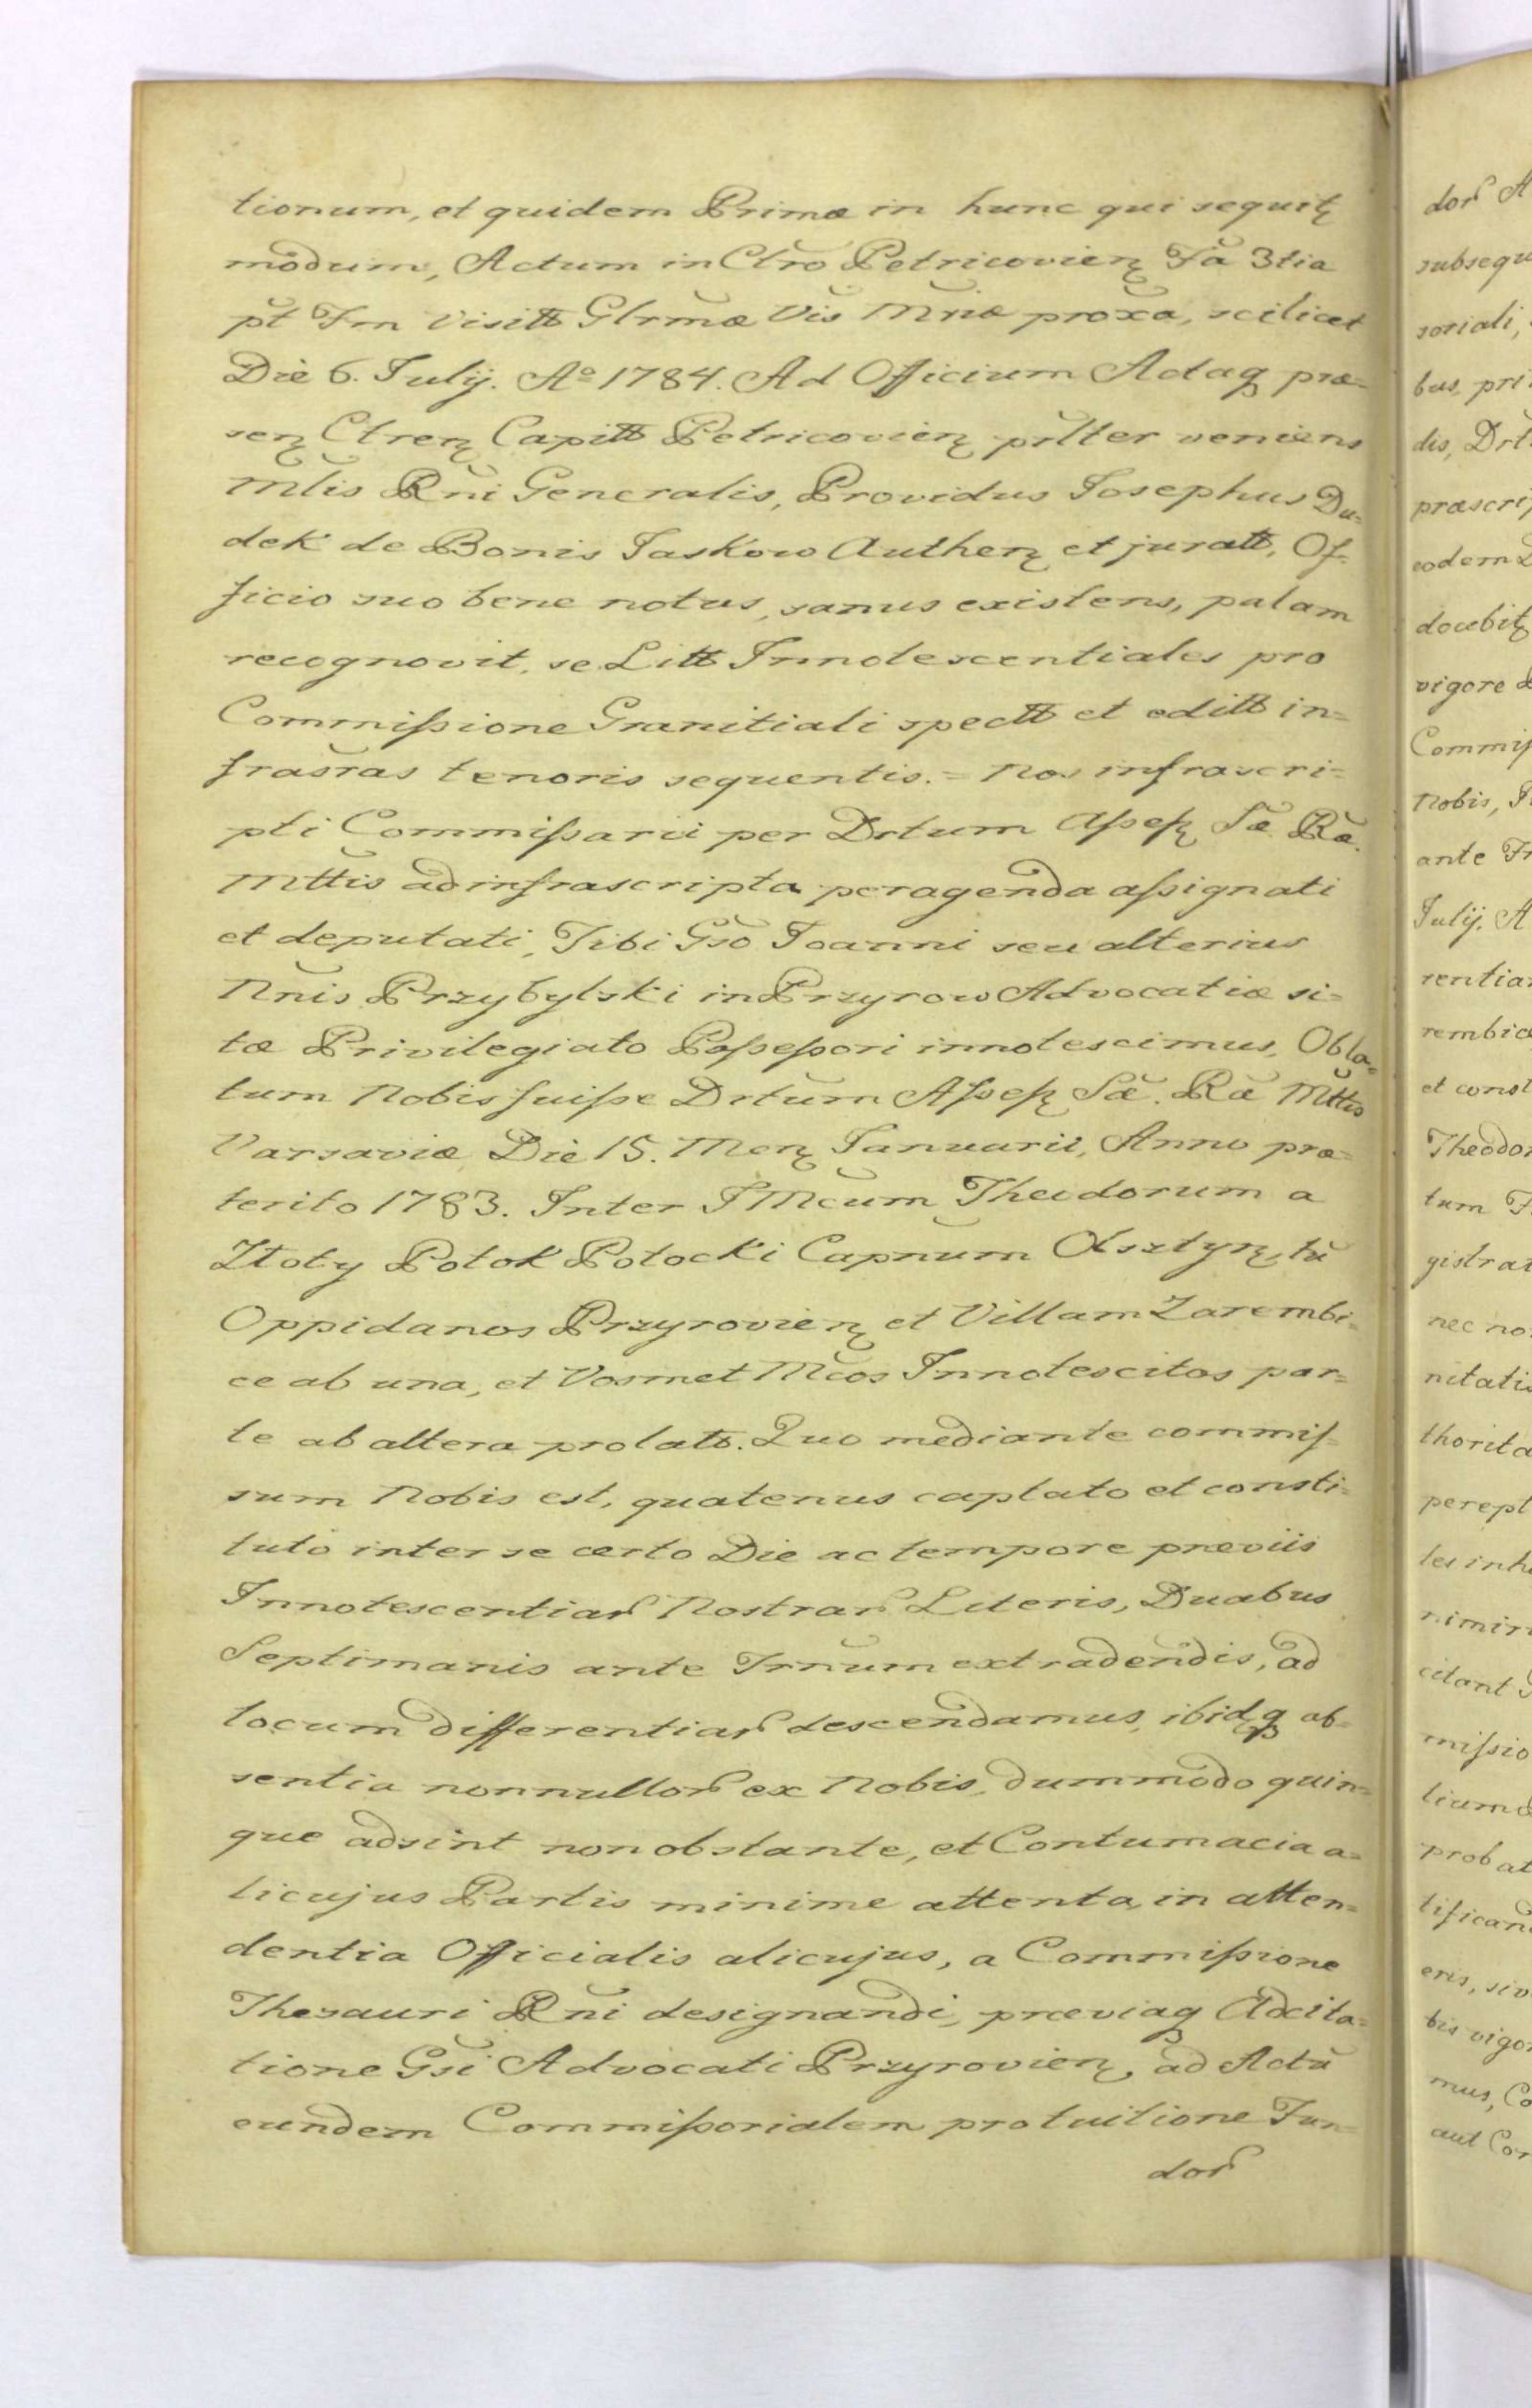 tionum, et quidem Primæ in hunc qui sequitꝫ
modum, Actum in Ctro Petricovienꝫ Fa 3tia
pt Fm Visitt Glrmæ Vis Mriæ proxa, scilicet
Die 6. Julij. Aº 1784. Ad Officium Actaqꝫ præ=
senꝫ Ctrenꝫ Capitt Petricovienꝫ psltter veniens
Mtis Rni Generalis, Providus Josephus Du=
dek de Bonis Jaskow Authenꝫ et juratt, Of=
ficio suo bene notus, sanus existens, palam
recognovit, se Litt Innotescentiales pro
Commiſsione Granitiali spectt et editt in=
frasras tenoris sequentis. = Nos infrascri=
pti Commiſsarii per Drtum Aſseſꝫ Sæ Ræ.
Mttis ad infrascripta peragenda aſsignati
et deputati, Tibi Gso Joanni seu alterius
Nnis Przybylski in Przyrow Advocatiæ si=
tæ Privilegiato Poſseſsori innotescimus, Obla=
tum Nobis fuiſse Drtum Aſseſꝫ Sæ. Ræ Mttis
Varsaviæ Die 15. Menꝫ Januarii, Anno præ=
terito 1783. Inter JMcum Theodorum a
Złoty Potok Potocki Capnum Olsztynꝫ, tu
Oppidanos Przyrovienꝫ et Villam Zarembi=
ce ab una, et Vosmet Mcos Innotescitos par=
te ab altera prolatt. Quo mediante commiſ=
sum Nobis est, quatenus captato et consti=
tuto inter se certo Die ac tempore præviis
Innotescentiarꝫ Nostrarꝫ Literis, Duabus
Septimanis ante Trnum extradendis, ad
locum differentiarꝫ descendamus, ibidꝫqꝫ ab=
sentia nonnullorꝫ ex Nobis, dummodo quin=
que adsint non obstante, et Contumacia a=
licujus Partis minime attenta, in atten=
dentia Officialis alicujus, a Commiſsione
Thesauri Rni designandi, præviaqꝫ Adcita=
tione Gsi Advocati Przyrovienꝫ, ad Actu
eundem Commiſsorialem pro tuitione Fun=
dorꝫ
dorꝫ A
subsequ
soriali,
bus, pri
dis, Drt
præscrip
eodem
docebitꝫ
vigore
Commiſ
Nobis,
ante
Julij. A
rentiar
rembic
et const
Theodor
tum
gistrat
nec no
nitatis
thorita
perept
les inh
nimir
citant
miſsio
tium
probat
tifican
eris, siv
bis vigor
mus, Co
aut Com